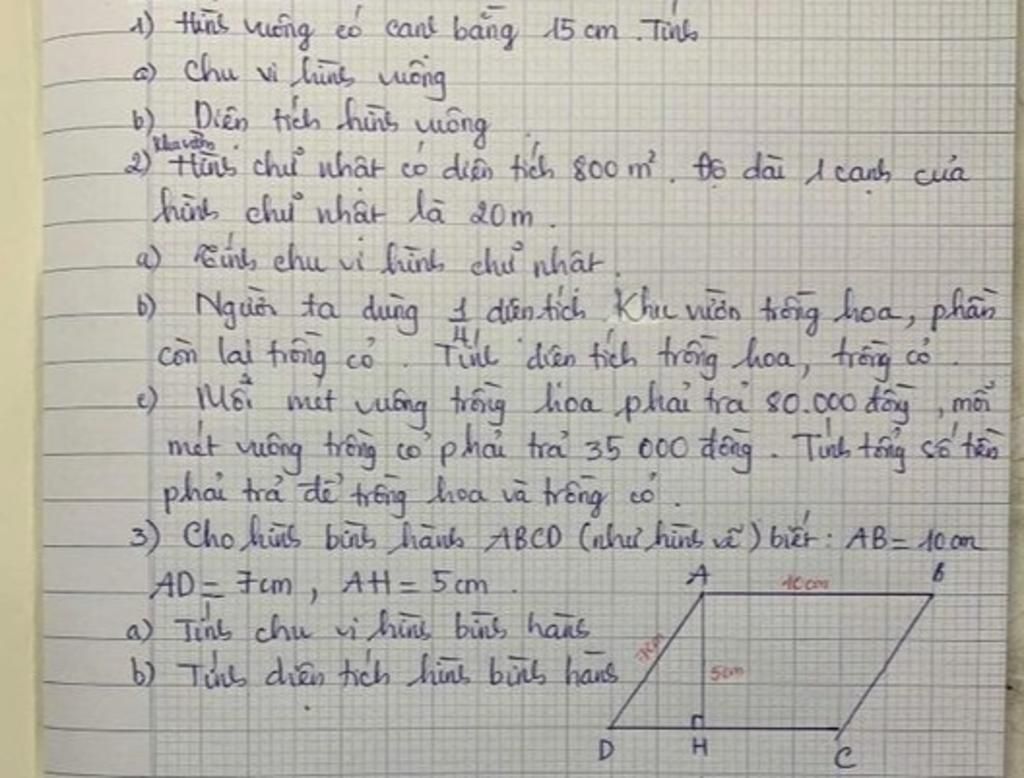 1) Hình vuông có cạnh bằng 15 cm. Tính
a) Chu vi hình vuông
b) Diện tích hình vuông
khu vườn
2) Hình chữ nhật có diện tích 800 m². Độ dài 1 cạnh của
hình chữ nhật là 20m.
a) Tính chu vi hình chữ nhật.
b) Người ta dùng 1/4 diện tích khu vườn trồng hoa, phần
còn lại trồng cỏ. Tính diện tích trồng hoa, trồng cỏ.
c) Mỗi mét vuông trồng hoa phải trả 80.000 đồng, mỗi
mét vuông trồng cỏ phải trả 35 000 đồng. Tính tổng số tiền
phải trả để trồng hoa và trồng cỏ.
3) Cho hình bình hành ABCD (như hình vẽ) biết: AB = 10 cm
AD = 7cm, AH = 5 cm.
a) Tính chu vi hình bình hành
b) Tính diện tích hình bình hành
A 10cm B
7cm 5cm
D H C